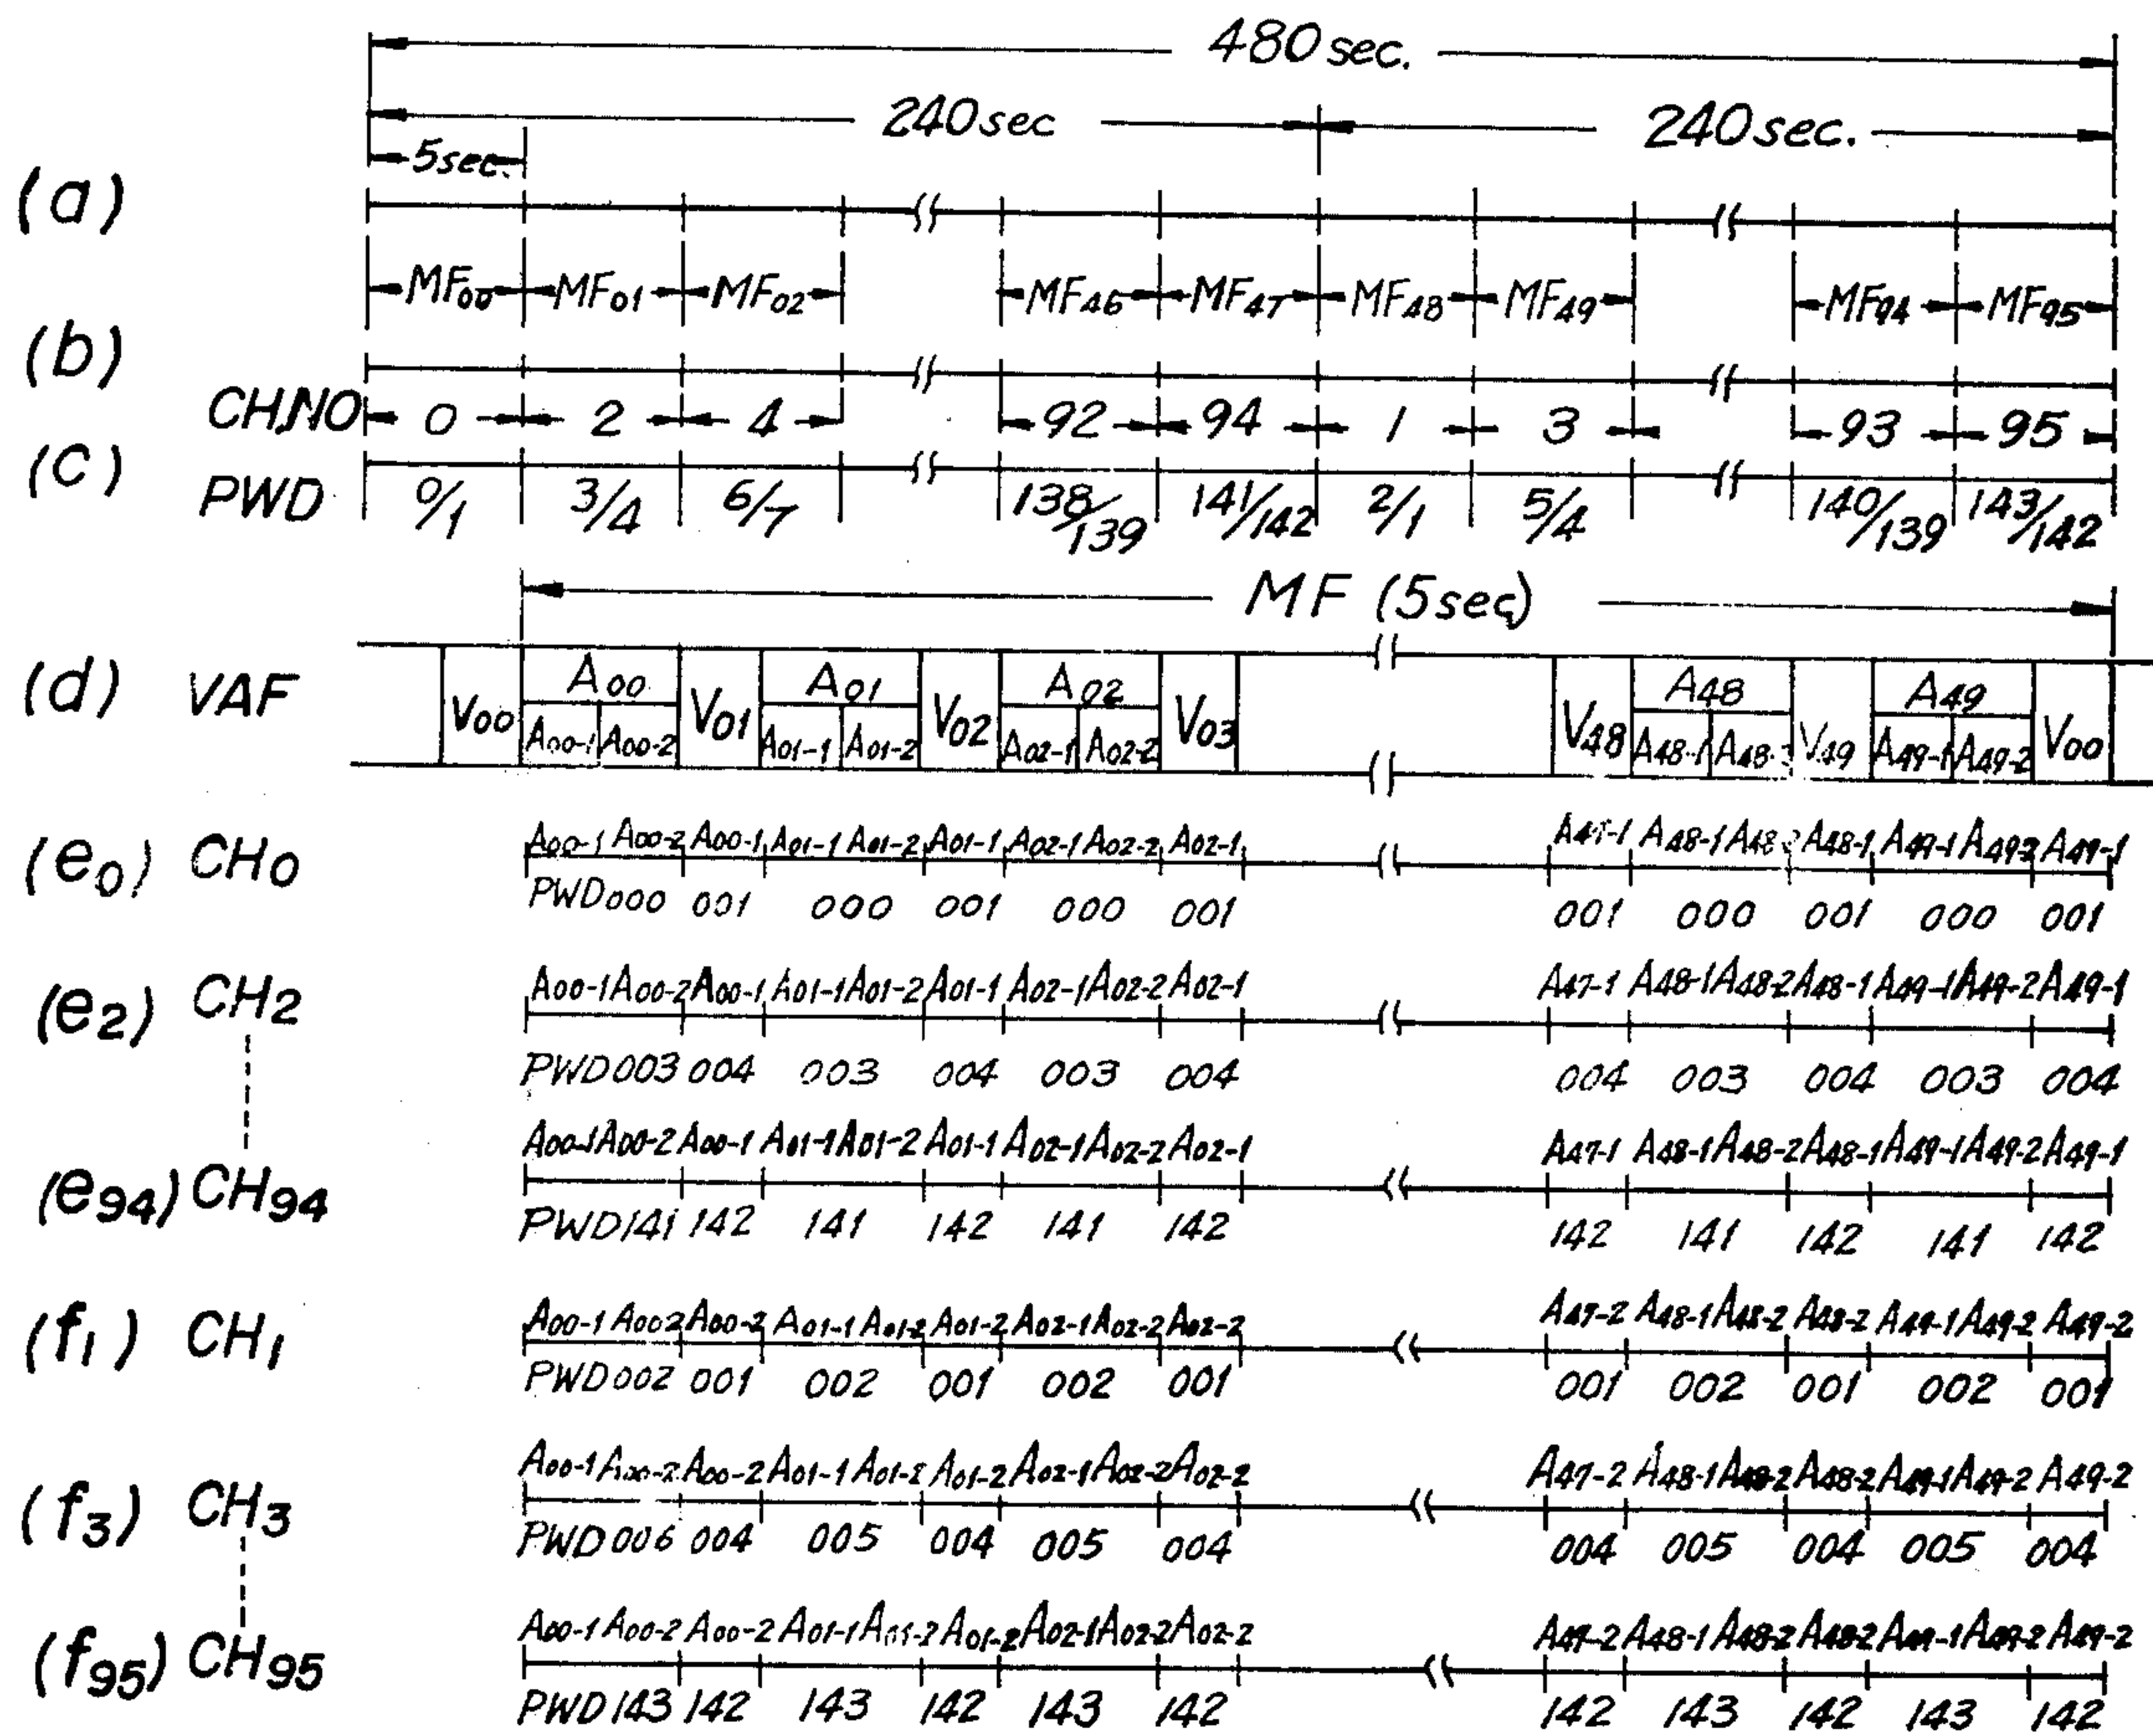 480 sec.
240 sec 240 sec.
5 sec.
(a)
MF00 MF01 MF02 MF46 MF47 MF48 MF49 MF94 MF95
(b)
CH.NO 0 2 4 92 94 1 3 93 95
(c) PWD 0/1 3/4 6/7 138/139 141/142 2/1 5/4 140/139 143/142
MF (5sec)
(d) VAF V00 A00 A00-1 A00-2 V01 A01 A01-1 A01-2 V02 A02 A02-1 A02-2 V03 V48 A48 A48-1 V49 A49 A49-1 A49-2 V00
(e0) CH0 A00-1 A00-2 A00-1 A01-1 A01-2 A01-1 A02-1 A02-2 A02-1 A47-1 A48-1 A48-2 A48-1 A49-1 A49-2 A49-1
PWD000 001 000 001 000 001 001 000 001 000 001
(e2) CH2 A00-1 A00-2 A00-1 A01-1 A01-2 A01-1 A02-1 A02-2 A02-1 A47-1 A48-1 A48-2 A48-1 A49-1 A49-2 A49-1
PWD003 004 003 004 003 004 004 003 004 003 004
(e94) CH94 A00-1 A00-2 A00-1 A01-1 A01-2 A01-1 A02-1 A02-2 A02-1 A47-1 A48-1 A48-2 A48-1 A49-1 A49-2 A49-1
PWD141 142 141 142 141 142 142 141 142 141 142
(f1) CH1 A00-1 A002 A00-2 A01-1 A01-2 A01-2 A02-1 A02-2 A02-2 A47-2 A48-1 A48-2 A48-2 A49-1 A49-2 A49-2
PWD002 001 002 001 002 001 001 002 001 002 001
(f3) CH3 A00-1 A00-2 A00-2 A01-1 A01-2 A01-2 A02-1 A02-2 A02-2 A47-2 A48-1 A48-2 A48-2 A49-1 A49-2 A49-2
PWD006 004 005 004 005 004 004 005 004 005 004
(f95) CH95 A00-1 A00-2 A00-2 A01-1 A01-2 A01-2 A02-1 A02-2 A02-2 A48-1 A48-2 A48-2 A49-1 A49-2 A49-2
PWD143 142 143 142 143 142 142 143 142 143 142